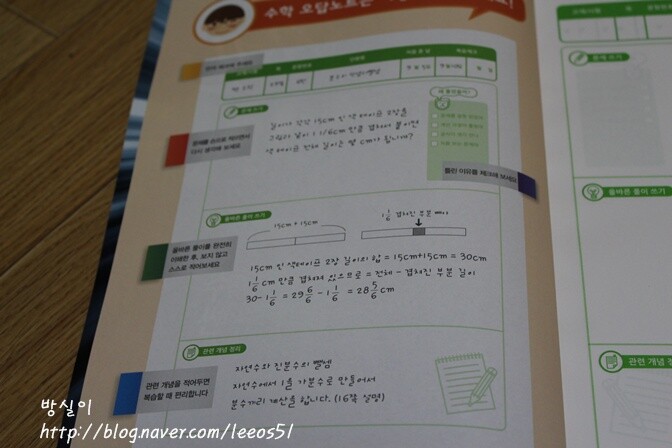 수학 오답노트는
길이가 각각 15cm 인 색 테이프 2장을
그림과 같이 1 1/6cm 만큼 겹쳐서 붙이면
색 테이프 전체 길이는 몇 cm가 됩니까?
문제를 손으로 적으면서
다시 생각해 보세요
틀린 이유를 체크해 보세요
올바른 풀이 쓰기
15cm + 15cm
1 1/6 겹쳐진 부분 빼기
올바른 풀이를 완전히
이해한 후, 보지 않고
스스로 적어보세요
15cm 인 색테이프 2장 길이의 합 = 15cm+15cm = 30cm
1 1/6 cm 만큼 겹쳐져 있으므로 = 전체 - 겹쳐진 부분 길이
30-1 1/6 = 29 6/6 - 1 1/6 = 28 5/6 cm
관련 개념 정리
자연수와 진분수의 뺄셈
자연수에서 1을 가분수로 만들어서
분수끼리 계산을 합니다. (16쪽 설명)
관련 개념을 적어두면
복습할 때 편리합니다
문제 쓰기
올바른 풀이 쓰기
관련 개념 정
방실이
http://blog.naver.com/leeos51